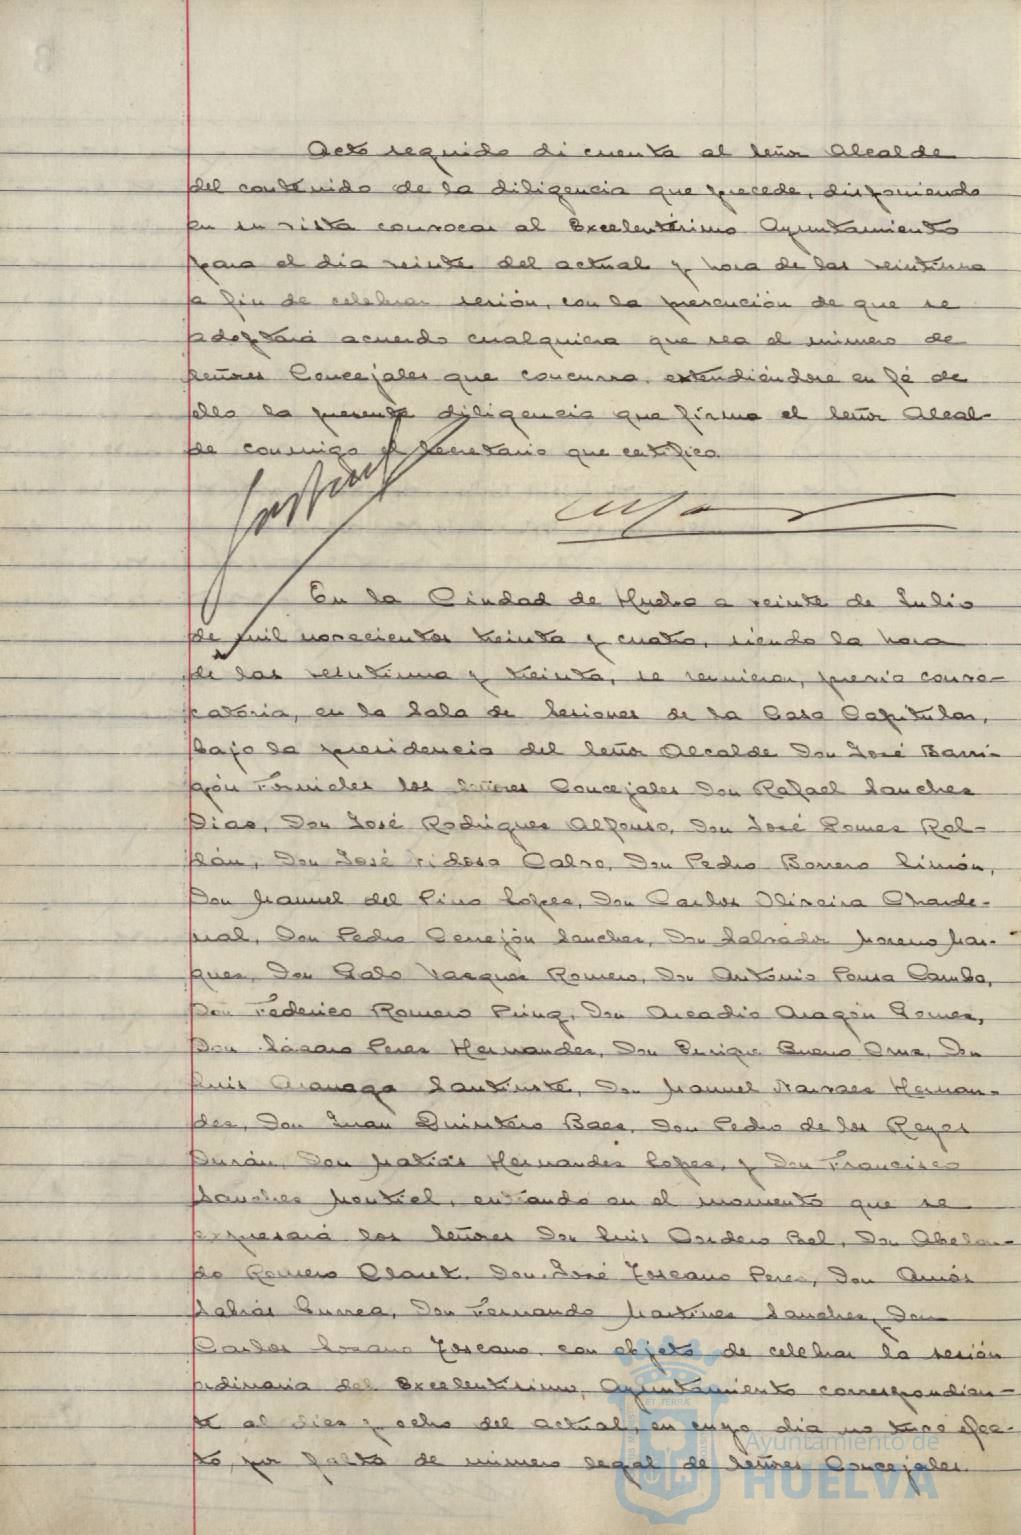 Acto seguido di cuenta al Señor Alcalde
del contenido de la diligencia que precede, disponiendo
en su vista convocar al Excelentísimo Ayuntamiento
para el día veinte del actual y hora de las veintiuna
a fin de celebrar sesión, con la prevención de que se
adoptará acuerdo cualquiera que sea el número de
Señores Concejales que concurra, extendiéndose en fé de
ello la presente diligencia que firma el Señor Alcal-
de conmigo el Secretario que certifico.
En la Ciudad de Huelva a veinte de Julio
de mil novecientos treinta y cuatro, siendo la hora
de las veintiuna y treinta, se reunieron, previa convo-
catoria, en la Sala de Sesiones de la Casa Capitular,
bajo la presidencia del Señor Alcalde Don José Barri-
gón Fornieles los Señores Concejales Don Rafael Sanchez
Diaz, Don José Rodriguez Alfonso, Don José Gomez Rol-
dán, Don José Vidosa Calvo, Don Pedro Borrero Limón,
Don Manuel del Pino Lopez, Don Carlos Oliveira Charde-
nal, Don Pedro Cerrejón Sanchez, Don Salvador Moreno Mar-
quez, Don Galo Vazquez Romero, Don Antonio Pousa Camba,
Don Federico Romero Puig, Don Arcadio Aragón Gomez,
Don Lázaro Perez Hernandez, Don Enrique Bueno Cruz, Don
Luis Aranaga Santiuste, Don Manuel Narvaez Hernan-
dez, Don Juan Quintero Baez, Don Pedro de los Reyes
Durán, Don Matías Hernandez Lopez, y Don Francisco
Sanchez Montiel, entrando en el momento que se
expresará los Señores Don Luis Cordero Bel, Don Abelar-
do Romero Claret, Don José Toscano Perez, Don Amós
Sabrás Gurrea, Don Fernando Martinez Sanchez, Don
Carlos Lozano Toscano con objeto de celebrar la sesión
ordinaria del Excelentísimo Ayuntamiento correspondien-
te al diez y ocho del actual, en cuyo día no tuvo efec-
to, por falta de número legal de Señores Concejales.
Ayuntamiento de
HUELVA